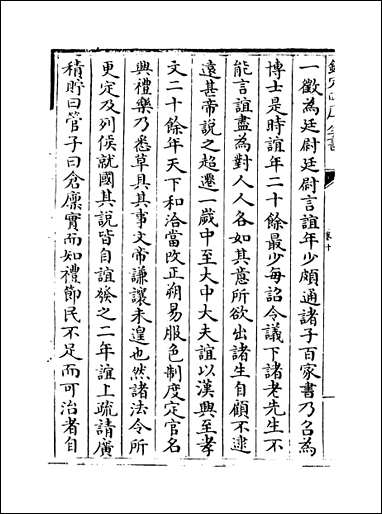 一徵為廷尉廷尉言誼年少頗通諸子百家書乃召為
博士是時誼年二十餘最少每詔令議下諸老先生不
能言誼盡為對人人各如其意所欲出諸生自顧不逮
遠甚帝說之超遷一嵗中至大中大夫誼以漢興至孝
文二十餘年天下和洽當改正朔易服色制度定官名
興禮樂乃悉草具其事文帝謙讓未遑也然諸法令所
更定及列侯就國其說皆自誼發之二年誼上疏請廣
積貯曰管子曰倉廪實而知禮節民不足而可治者自